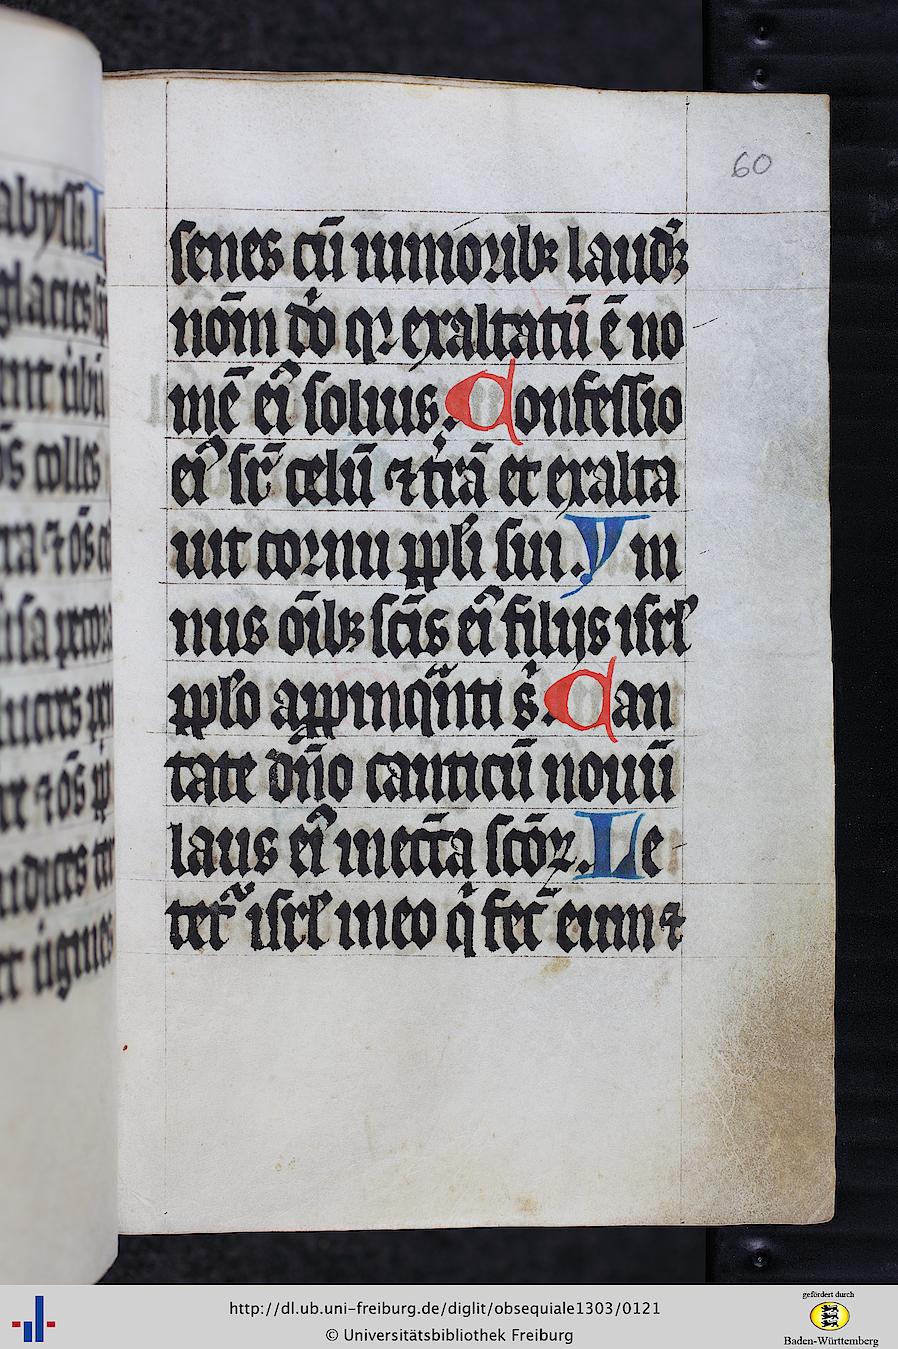 abyssi. I
glacies sp̄s
ōs colles
60
senes cū iuniorib; laud;
nōm dn̄i qꝛ exaltatū ē no
mē eiꝰ solius. Confessio
eiꝰ sr̄ celū ⁊ t̄rā et exalta
uit cornu ppl̄i sui. Ym
nus ōib; sc̄is eiꝰ filijs isrl̄
ppl̄o appinqu̅nti s̄. Can
tate dn̄o canticū nouū
laus eiꝰ in ecc̄a sc̄oꝝ. Le
tet̄ isrl̄ in eo q̄ fec̄ eum ⁊
http://dl.ub.uni-freiburg.de/diglit/obsequiale1303/0121
© Universitätsbibliothek Freiburg
gefördert durch
Baden-Württemberg